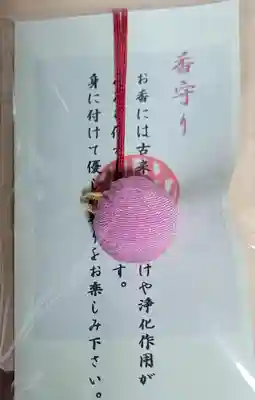 香守り
お香には古来
けや浄化作用が
す。
身に付けて優し
をお楽しみ下さい。